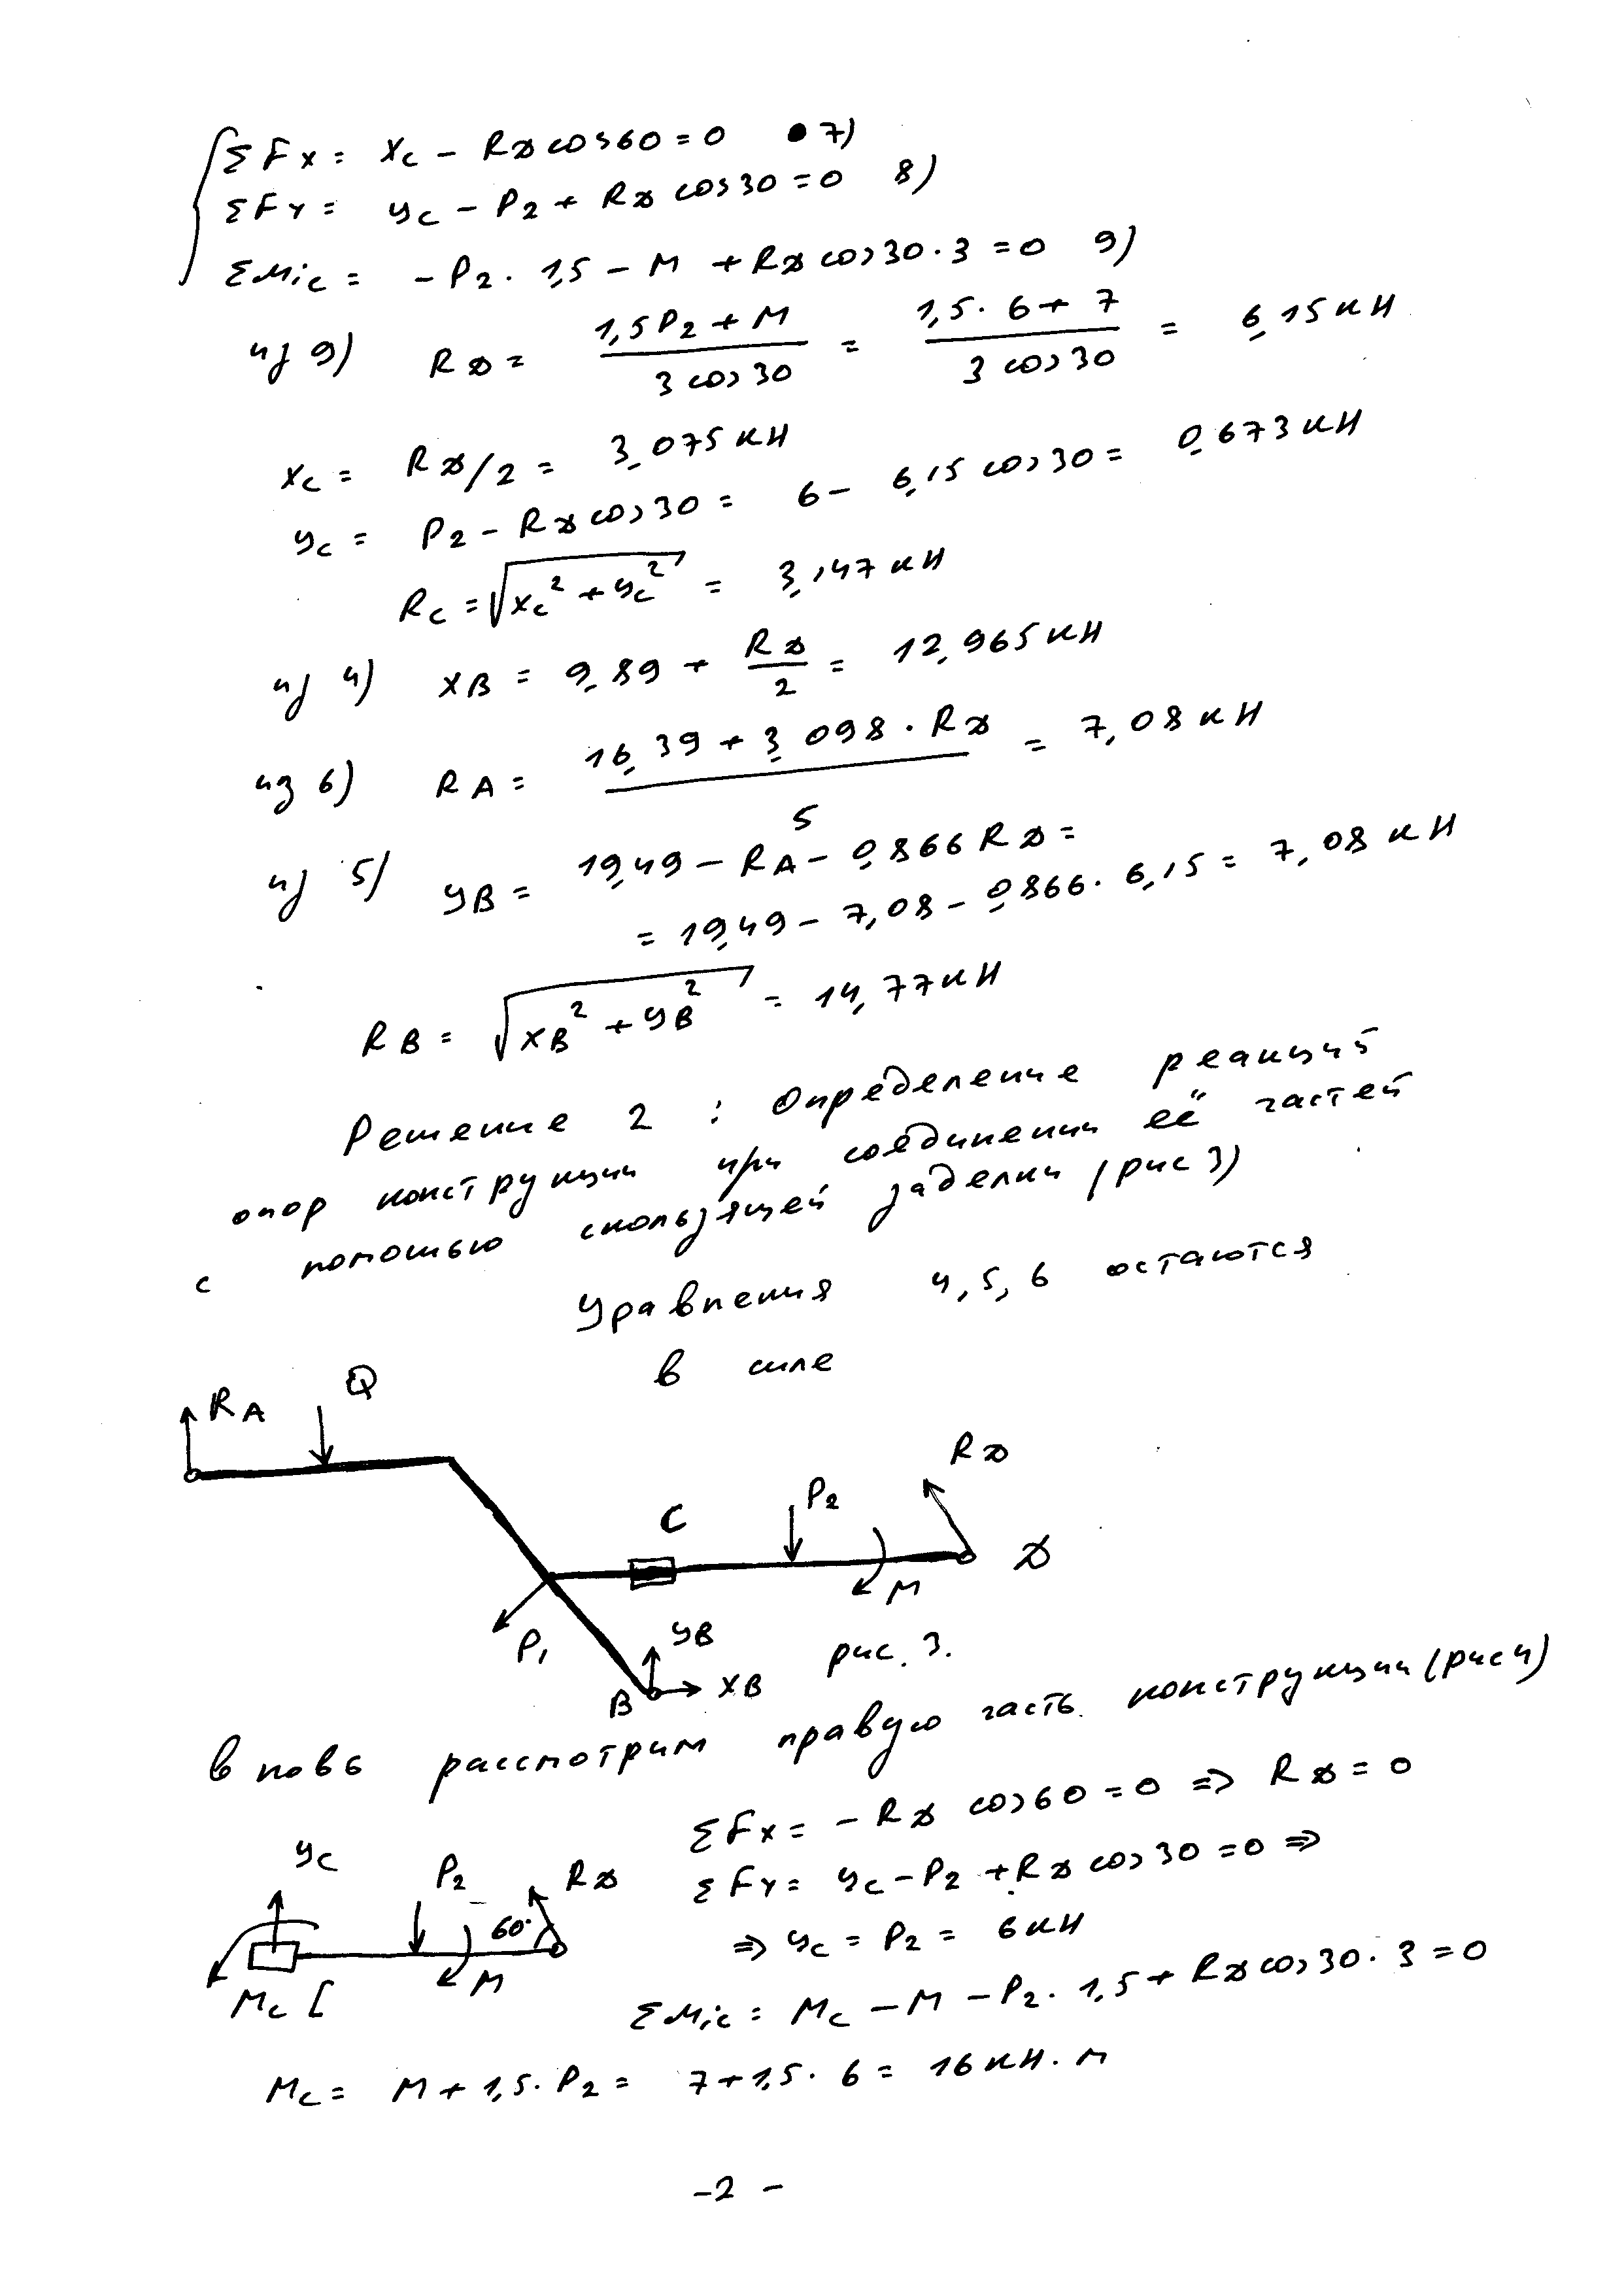 ΣFx = Xc - RD cos60 = 0 7)
ΣFY = Yc - P2 + RD cos30 = 0 8)
ΣMic = -P2 · 1,5 - M + RD cos30 · 3 = 0 9)
из 9) RD = (1,5P2 + M) / (3 cos30) = (1,5 · 6 + 7) / (3 cos30) = 6,15 кН
Xc = RD/2 = 3,075 кН
Yc = P2 - RD cos30 = 6 - 6,15 cos30 = 0,673 кН
Rc = √(Xc² + Yc²) = 3,147 кН
из 4) XB = 9,89 + RD/2 = 12,965 кН
из 6) RA = (16,39 + 3,098 · RD) / 5 = 7,08 кН
из 5) YB = 19,49 - RA - 0,866 RD =
= 19,49 - 7,08 - 0,866 · 6,15 = 7,08 кН
RB = √(XB² + YB²) = 14,77 кН
Решение 2 : Определение реакций
опор конструкции при соединении её частей
с помошью скользящей заделки (рис 3)
Уравнения 4, 5, 6 остаются
в силе
RA Q
RD
P2
C
D
M
P1
YB
B XB
рис. 3.
вновь рассмотрим правую часть конструкции (рис 4)
ΣFx = - RD cos60 = 0 => RD = 0
ΣFY = Yc - P2 + RD cos30 = 0 =>
=> Yc = P2 = 6 кН
Yc P2 RD
60°
Mc [ M
ΣMic = Mc - M - P2 · 1,5 + RD cos30 · 3 = 0
Mc = M + 1,5 · P2 = 7 + 1,5 · 6 = 16 кН · м
- 2 -